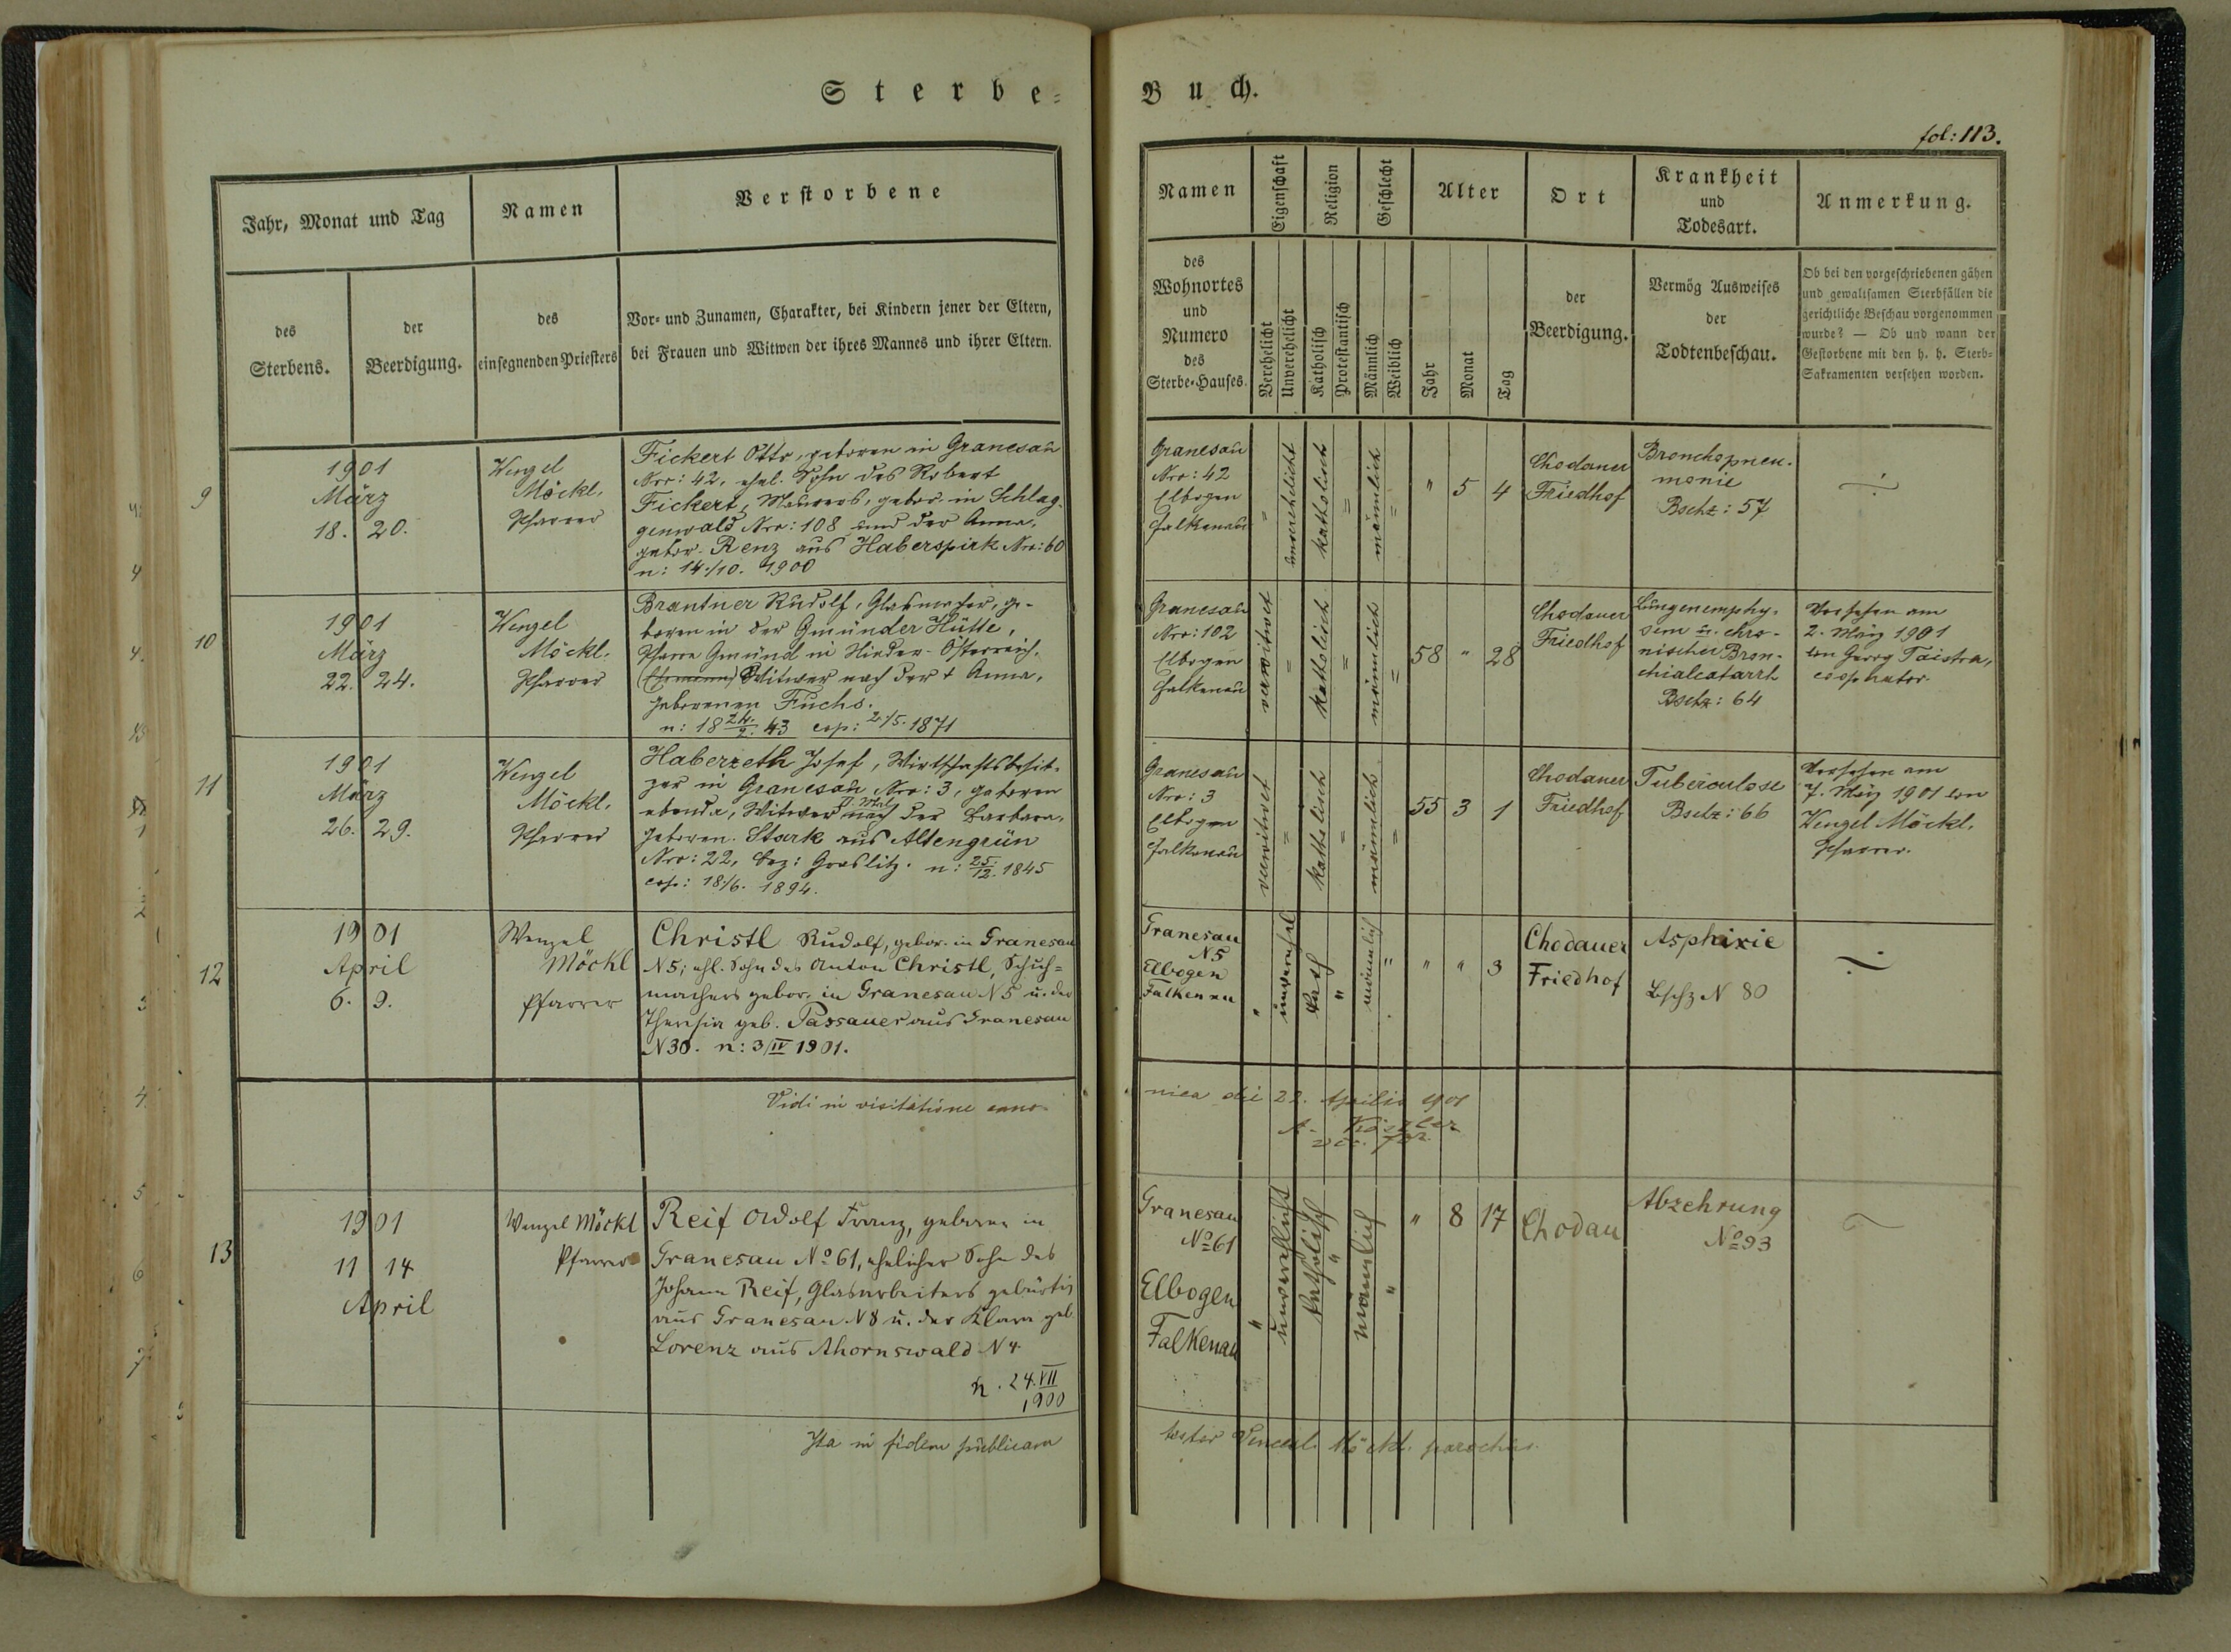 Sterbe=
Buch.
fol: 113.
Jahr, Monat und Tag
Namen
Verstorbene
des
Sterbens.
der
Beerdigung.
des
einsegnenden Priesters
Vor= und Zunamen, Charakter, bei Kindern jener der Eltern,
bei Frauen und Witwen der ihres Mannes und ihrer Eltern.
Namen
Eigenschaft
Religion
Geschlecht
Alter
Ort
Krankheit
und
Todesart.
Anmerkung.
des
Wohnortes
und
Numero
des
Sterbe=Hauses.
Verehelicht
Unverehelicht
Katholisch
Protestantisch
Männlich
Weiblich
Jahr
Monat
Tag
der
Beerdigung.
Vermög Ausweises
der
Todtenbeschau.
Ob bei den vorgeschriebenen gähen
und gewaltsamen Sterbfällen die
gerichtliche Beschau vorgenommen
wurde? — Ob und wann der
Gestorbene mit den h. h. Sterb=
Sakramenten versehen worden.
9
1901
März
18. 20.
Wenzel
Möckl,
Pfarrer
Fickert Otto, geboren in Granesau
Nro: 42, ehel. Sohn des Robert
Fickert, Maurers, gebor. in Schlag=
genwald Nro: 108 und der Anna,
gebor. Renz aus Haberspirk Nro: 60
n: 14./10. 1900
Granesau
Nro: 42
Elbogen
Falkenau
=
unverehelicht
katholisch
=
männlich
=
" 5 4
Chodauer
Friedhof
Bronchopneu=
monie
Bschz: 57
÷
10
1901
März
22. 24.
Wenzel
Möckl,
Pfarrer
Brantner Rudolf, Glasmacher, ge=
boren in der Gmünder Hütte,
Pfarre Gmünd in Nieder-Österreich,
(Ehemann) Witwer nach der † Anna,
geborenen Fuchs.
n: 18 24./2. 43 cop: 2./5. 1871
Granesau
Nro: 102
Elbogen
Falkenau
verwitwet
=
katholisch
=
männlich
=
58 " 28
Chodauer
Friedhof
Lungenemphy=
sem u. chro=
nischer Bron=
chialcatarrh
Bschz: 64
Versehen am
2. März 1901
von Georg Taistra,
cooperator.
11
1901
März
26. 29.
Wenzel
Möckl,
Pfarrer
Haberzeth Josef, Wirtschaftsbesit=
zer in Granesau Nro: 3, geboren
ebenda, Witwer II. Mal nach der Barbara,
geboren. Stark aus Altengrün
Nro: 22, Bez: Graslitz. n: 25./12. 1845
cop: 18./6. 1894.
Granesau
Nro: 3
Elbogen
Falkenau
verwitwet
=
katholisch
=
männlich
=
55 3 1
Chodauer
Friedhof
Tuberculose
Bschz: 66
Versehen am
7. März 1901 von
Wenzel Möckl,
Pfarrer.
12
1901
April
6. 9.
Wenzel
Möckl
Pfarrer
Christl Rudolf, gebor. in Granesau
N 5; ehl. Sohn des Anton Christl, Schuh=
machers gebor. in Granesau N 5 u. der
Theresia geb. Passauer aus Granesau
N 30. n: 3/IV 1901.
Granesau
N 5
Elbogen
Falkenau
"
unverehel
kath
"
männlich
"
" " 3
Chodauer
Friedhof
Asphixie
Bschz N 80
÷
Vidi in visitatione cano=
nica die 22. Aprilis 901
A. Kögler
vic. for.
13
1901
11 14
April
Wenzel Möckl
Pfarrer
Reif Adolf Franz, geboren in
Granesau No 61, ehelicher Sohn des
Johann Reif, Glasarbeiters gebürtig
aus Granesau N 8 u. der Klara geb
Lorenz aus Ahornswald N 4
n. 24. VII
1900
Granesau
No 61
Elbogen
Falkenau
"
unverehelicht
katholisch
"
männlich
"
" 8 17
Chodau
Abzehrung
No 93
Ita in fidem publicam
testor Venceslaus Möckl parochus.